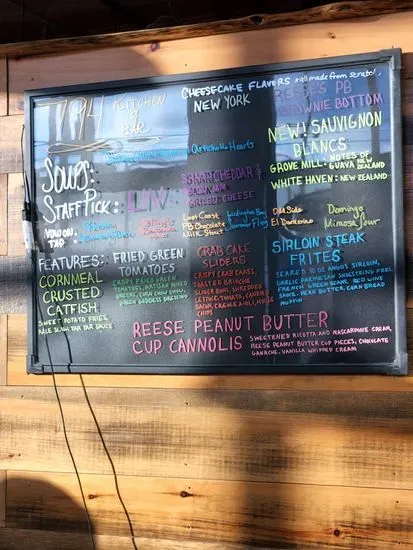 KITCHEN
&
BAR
CHEESECAKE FLAVORS *all made from scratch!
NEW YORK
REESE'S PB
BROWNIE BOTTOM
Artichoke Hearts
NEW! SAUVIGNON
BLANCS
GROVE MILL: NOTES OF
GUAVA NEW
ZEALAND
WHITE HAVEN: NEW ZEALAND
SOUPS:
STAFF PICK:
CHEDDAR &
JAM
GRILLED CHEESE
YOU ON
TAP
Lost Coast
PB Chocolate
Milk Stout
Ludington Bay
Old Side
El Dankerino
Domingo
Mimosa Sour
FEATURES:
CORNMEAL
CRUSTED
CATFISH
SWEET POTATO FRIES,
KALE SLAW TAR TAR SAUCE
FRIED GREEN
TOMATOES
CRISPY FRIED GREEN
TOMATOES, ARTISAN MIXED
GREENS, CORN CHOW CHOW,
GREEN GODDESS DRESSING
CRAB CAKE
SLIDERS
CRISPY CRAB CAKES,
TOASTED BRIOCHE
SLIDER BUNS, SHREDDED
LETTUCE, TOMATO,
BACON, CREOLE AIOLI, HOUSE
CHIPS
SIRLOIN STEAK
FRITES
SEARED 10 OZ ANGUS SIRLOIN,
GARLIC PARMESAN SHOESTRING FRIES,
FRENCH GREEN BEANS, RED WINE
SAUCE, HERB BUTTER, CORN BREAD
MUFFIN
REESE PEANUT BUTTER
CUP CANNOLIS
SWEETENED RICOTTA AND MASCARPONE CREAM,
REESE PEANUT BUTTER CUP PIECES, CHOCOLATE
GANACHE, VANILLA WHIPPED CREAM